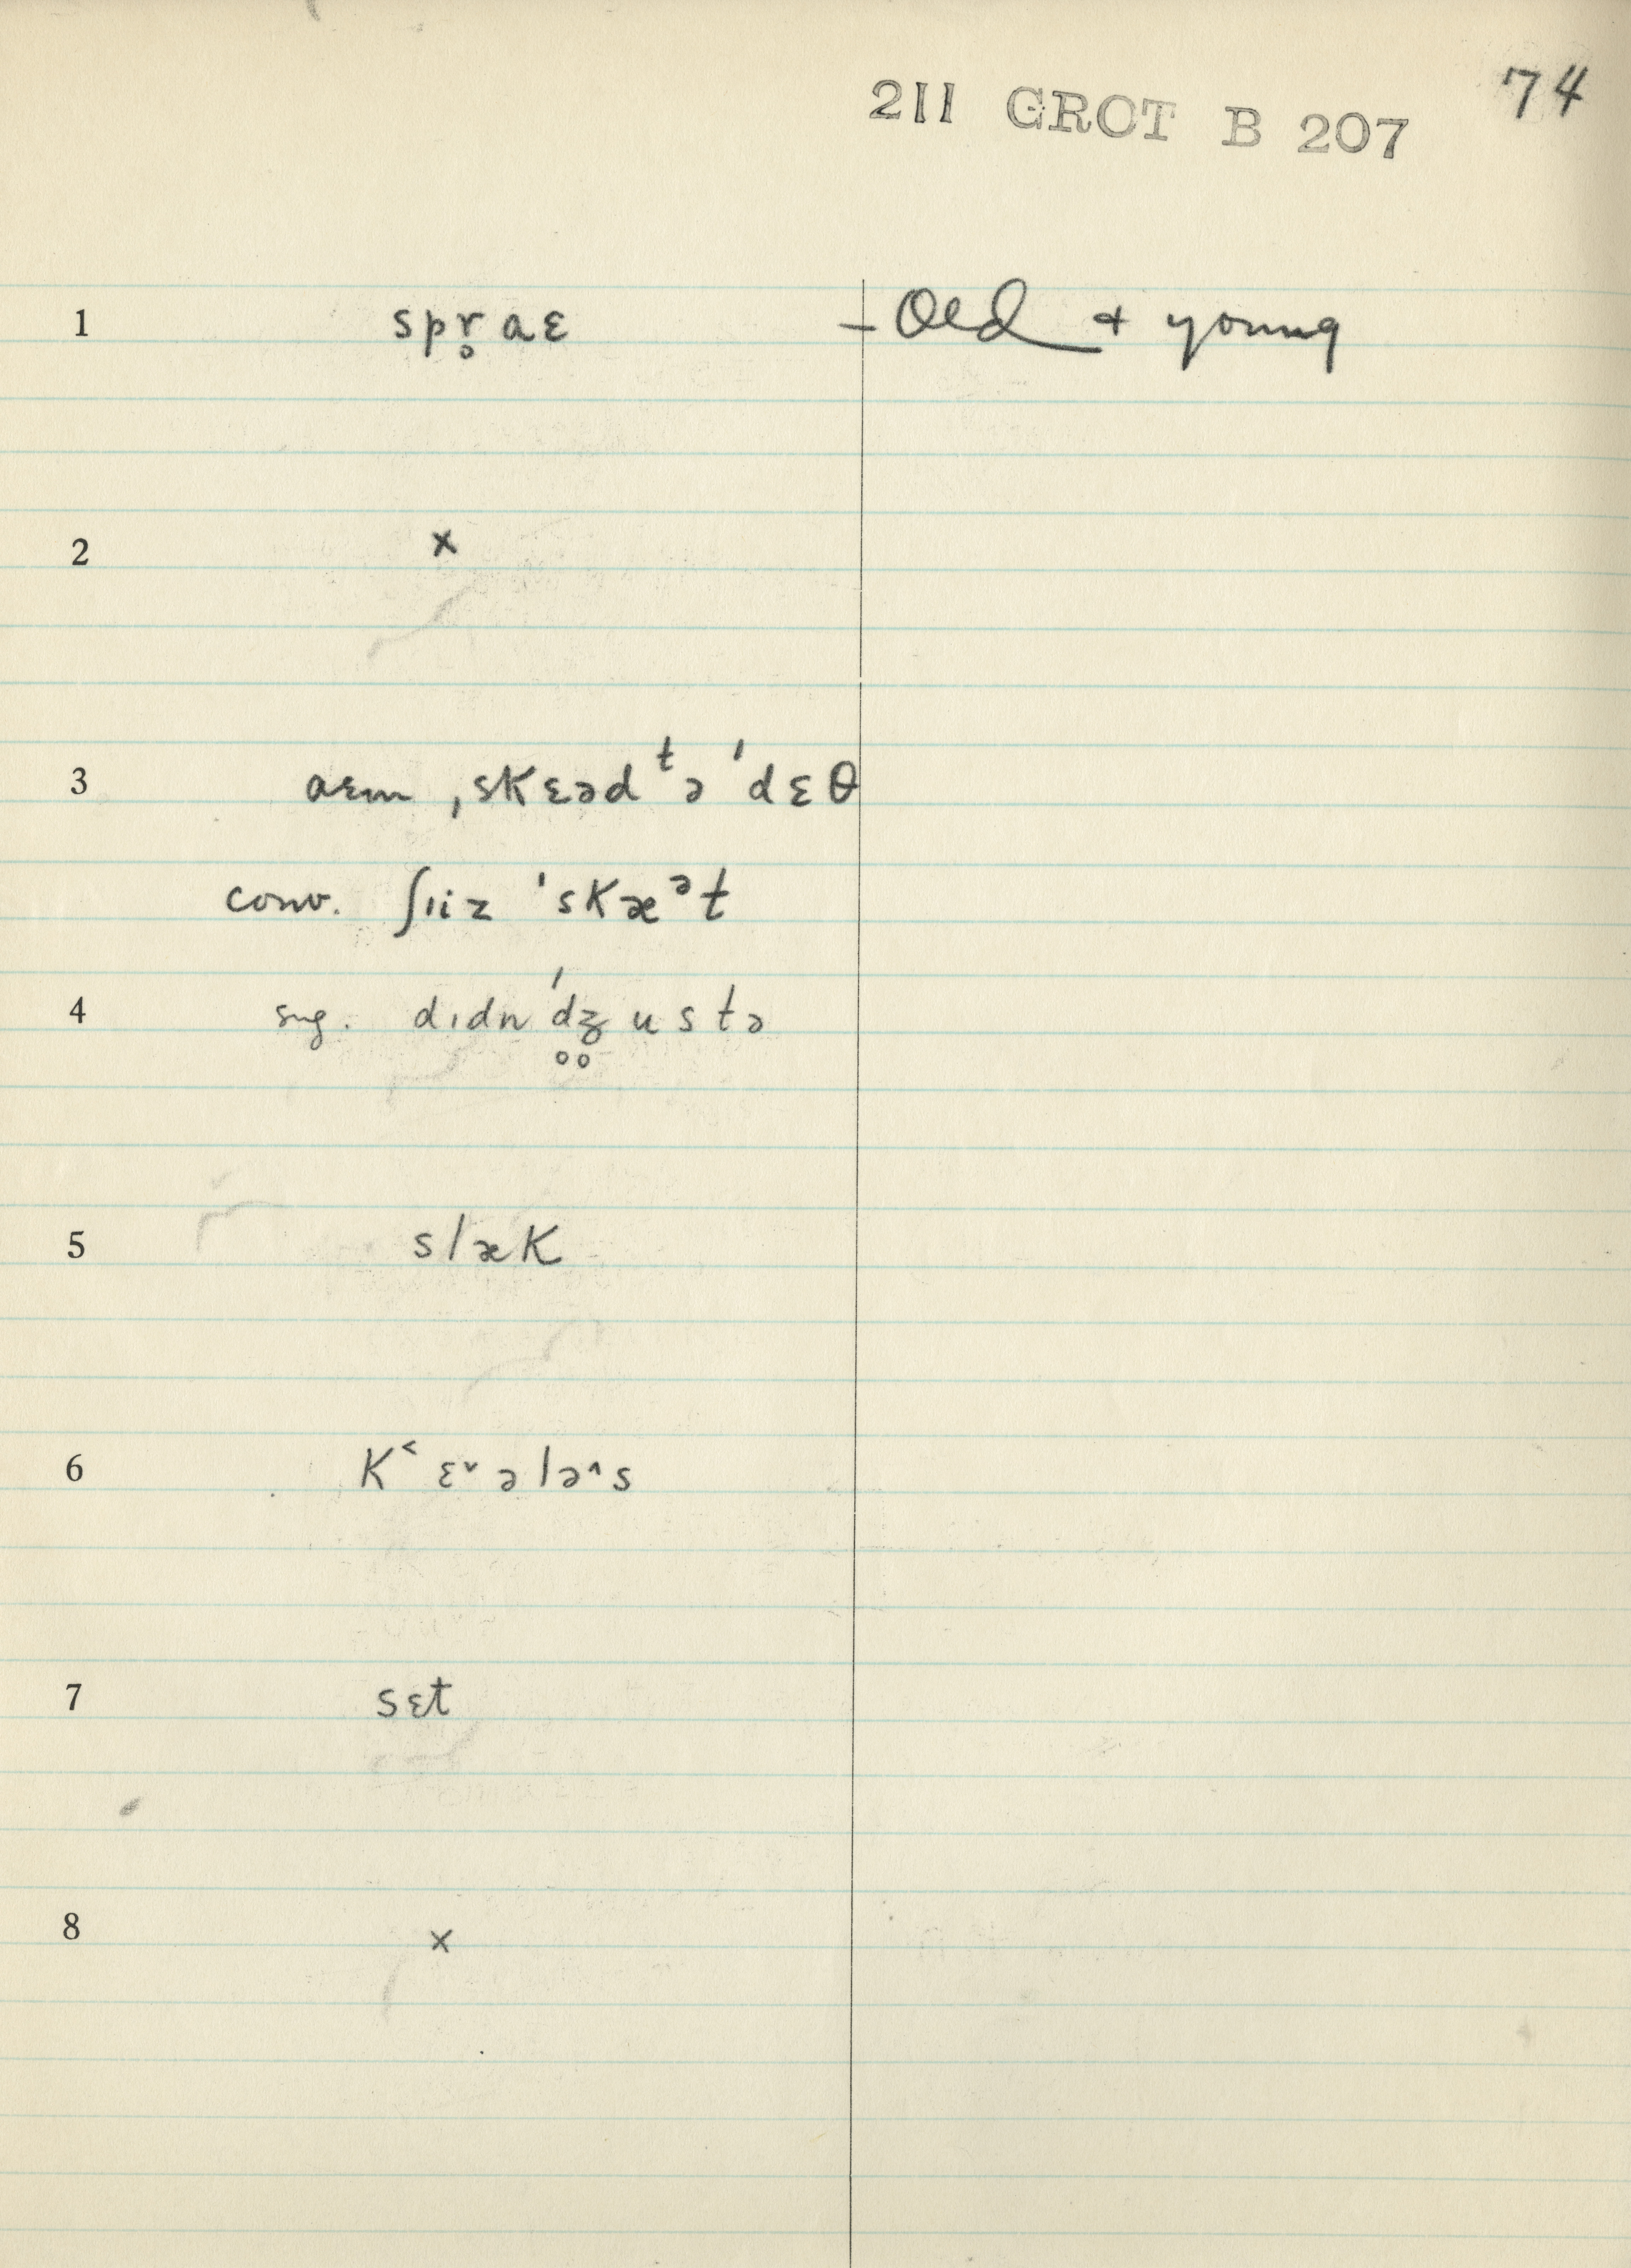 74
211 GROT B 207
1 spr̥aɛ – Old + young
2 x
3 aɛm ˌskɛədᵗə ˈdɛθ
conv. ʃıiz ˈskæᵊt
4 sug. dıdn ˈd̥z̥ustə
5 slæk
6 K˂ɛ˅ələ˄s
7 sɛt
8 x